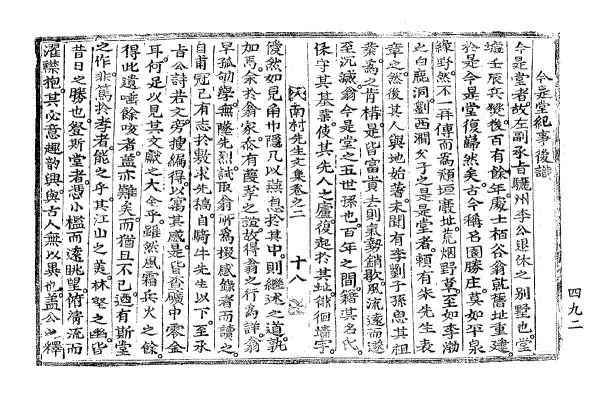 今是堂紀事後識
今是堂者故左副承旨驪州李公退休之別墅也堂
墟壬辰兵燹後百有餘年慶士栢谷翁就舊址重建
於是今是堂復巋然矣古今稱名園勝庄莫如平泉
綠野然不一再傳而鬻頹垣毀址荒烟野草至如李渤
之白鹿洞劉西澗父子之是是堂者賴有朱先生表
章之然後其人與地始著未聞有李劉子孫思其祖
業爲之肯構是皆富貴去則氣勢銷歇風流遠而遂
至沉滅翁今是堂之五世孫也百年之間籍其名氏
保守其基業使其先人之廬復起於其址徘徊墻宇
南村先生文集卷之二
十八
僾然如見角巾隱几以燕息於其中則繼述之道孰
加焉余於翁家忝有葭莩之誼故得翁之行爲詳翁
早孤劬學無墜先烈試取翁所爲掇感錄者而讀之
自甫冠已有志於敷求先稿自騎牛先生以下至承
旨公詩若文旁搜編得以寓其感是皆中零金
耳何足以見其文獻之大全乎雖然風霜兵火之餘
得此遺唾餘咳者盖亦難矣而猶且不已迺有斯堂
之作非篤於孝者能之乎其江山之美林壑之幽皆
昔日之勝也登斯堂者憑小檻而遠眺望俯淸流而
濯襟抱其必意趣韵興與古人無以異也盖公之釋
四九二